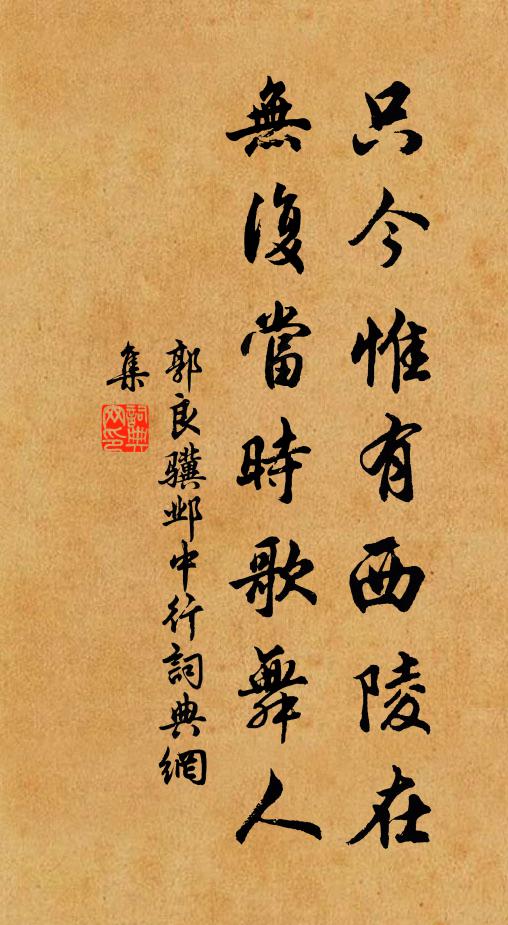 只今惟有西陵在
無復當時歌舞人
郭良骥邺中行詞典網
集
詞典
文印